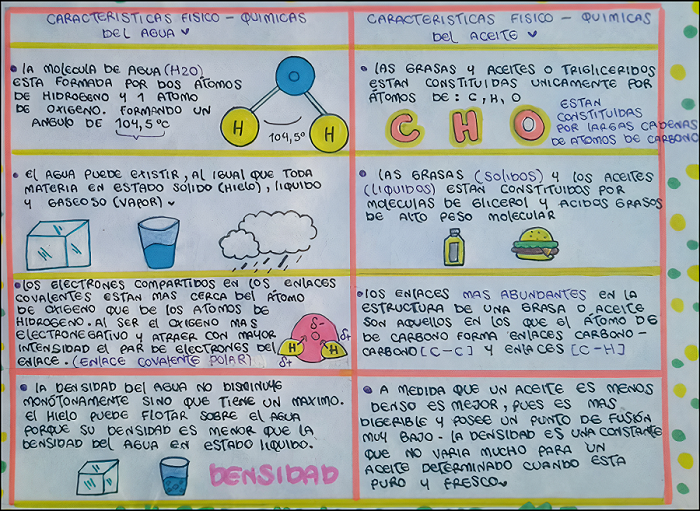 CARACTERISTICAS FISICO - QUIMICAS
DEL AGUA
LA MOLECULA DE AGUA (H2O)
ESTA FORMADA POR DOS ÁTOMOS
DE HIDROGENO Y 1 ATOMO
DE OXIGENO. FORMANDO UN
ANGULO DE 104,5ºC
O
H
H
104,5º
EL AGUA PUEDE EXISTIR, AL IGUAL QUE TODA
MATERIA EN ESTADO SOLIDO (HIELO), LIQUIDO
Y GASEOSO (VAPOR)
LOS ELECTRONES COMPARTIDOS EN LOS ENLACES
COVALENTES ESTAN MAS CERCA DEL ÁTOMO
DE OXIGENO QUE DE LOS ATOMOS DE
HIDROGENO. AL SER EL OXIGENO MAS
ELECTRONEGATIVO Y ATRAER CON MAIOR
INTENSIDAD EL PAR DE ELECTRONES DEL
ENLACE. (ENLACE COVALENTE POLAR)
δ-
O
H
H
δ+
δ+
LA DENSIDAD DEL AGUA NO DISMINUYE
MONÓTONAMENTE SINO QUE TIENE UN MAXIMO.
EL HIELO PUEDE FLOTAR SOBRE EL AGUA
PORQUE SU DENSIDAD ES MENOR QUE LA
DENSIDAD DEL AGUA EN ESTADO LIQUIDO.
DENSIDAD
CARACTERISTICAS FISICO - QUIMICAS
DEL ACEITE
LAS GRASAS Y ACEITES O TRIGLICERIDOS
ESTAN CONSTITUIDAS UNICAMENTE POR
ÁTOMOS DE: C, H, O
C H O
ESTAN
CONSTITUIDAS
POR LARGAS CADENAS
DE ATOMOS DE CARBONO
LAS GRASAS (SOLIDOS) Y LOS ACEITES
(LIQUIDOS) ESTAN CONSTITUIDOS POR
MOLECULAS DE GLICEROL Y ACIDOS GRASOS
DE ALTO PESO MOLECULAR
LOS ENLACES MAS ABUNDANTES EN LA
ESTRUCTURA DE UNA GRASA O ACEITE
SON AQUELLOS EN LOS QUE EL ÁTOMO DE
DE CARBONO FORMA ENLACES CARBONO-
CARBONO [C-C] Y ENLACES [C-H]
A MEDIDA QUE UN ACEITE ES MENOS
DENSO ES MEJOR, PUES ES MAS
DIGERIBLE Y POSEE UN PUNTO DE FUSIÓN
MUY BAJO. LA DENSIDAD ES UNA CONSTANTE
QUE NO VARIA MUCHO PARA UN
ACEITE DETERMINADO CUANDO ESTA
PURO Y FRESCO